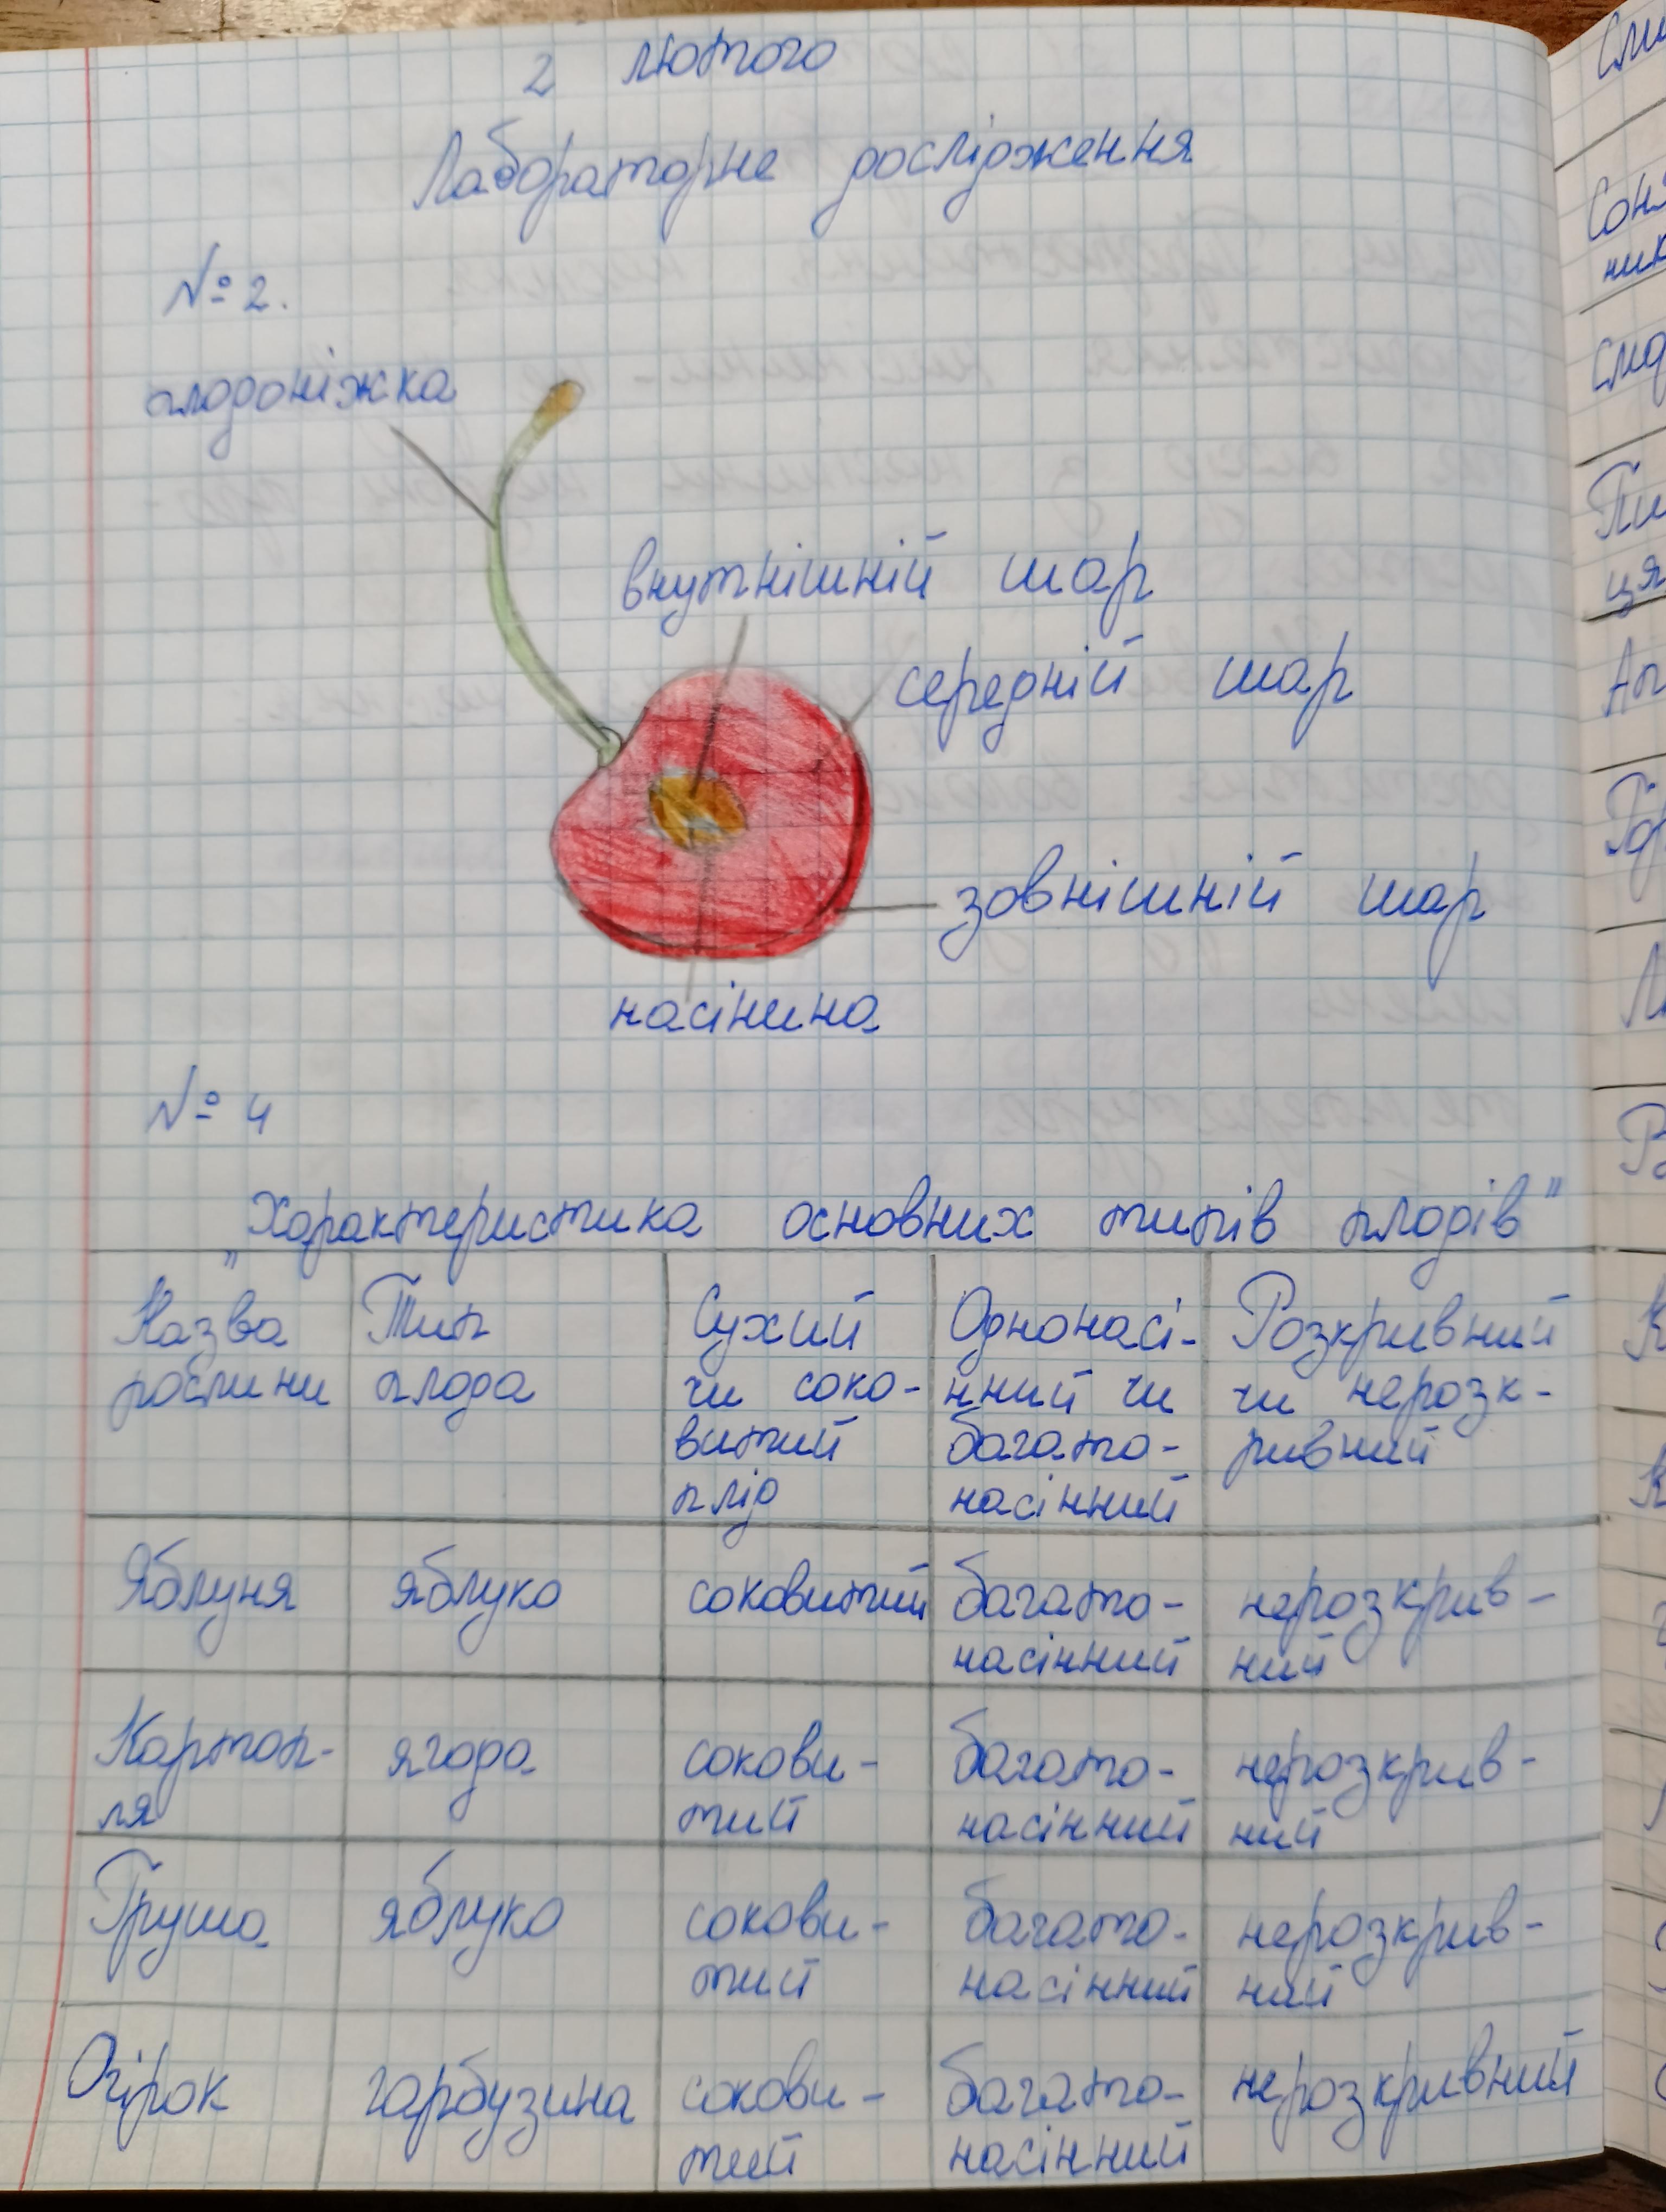 2 лютого
Лабораторне дослідження
№ 2.
плодоніжка
внутнішній шар
середній шар
зовнішній шар
насінина
№ 4
„Характеристика основних типів плодів"
Назва рослини
Тип плода
Сухий чи соко-
витий плід
Однонасі-
нний чи багато-
насінний
Розкривний чи нерозк-
ривний
Яблуня яблуко соковитий багато-
насінний
нерозкрив-
ний
Картоп-
ля
ягода
сокови-
тий
багато-
насінний
нерозкрив-
ний
Груша яблуко сокови-
тий
багато-
насінний
нерозкрив-
ний
Огірок гарбузина сокови-
тий
багато-
насінний
нерозкривний